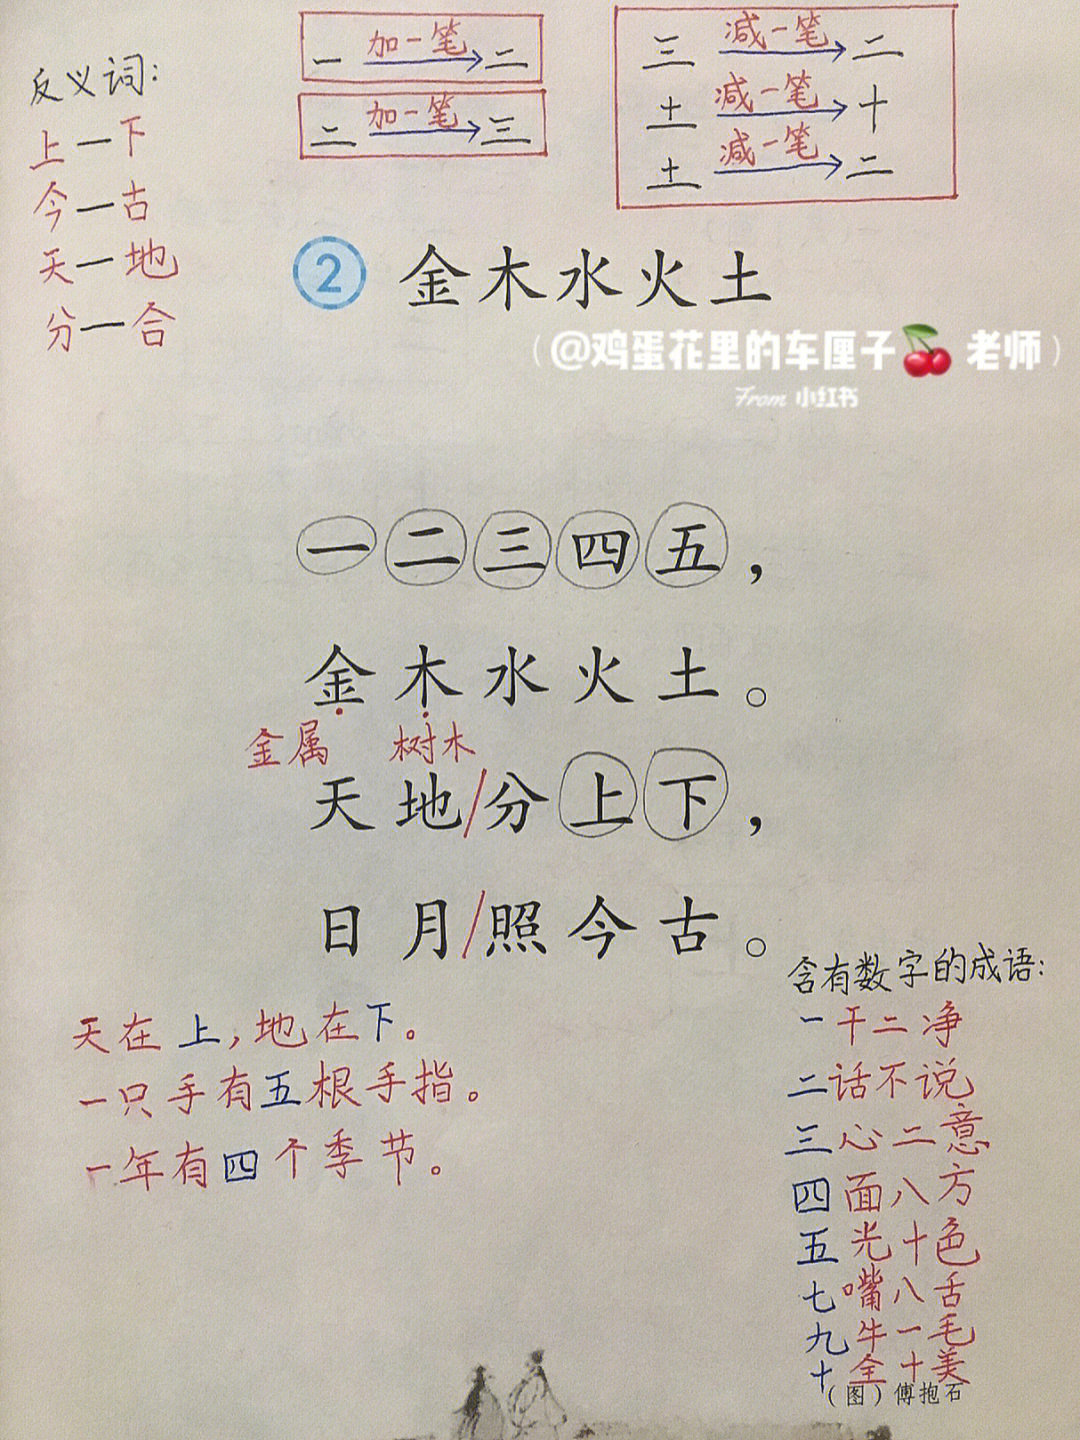 反义词:
上—下
今—古
天—地
分—合
一 加一笔 二
二 加一笔 三
三 减一笔 二
土 减一笔 十
土 减一笔 二
2 金木水火土
(@鸡蛋花里的车厘子🍒 老师)
From 小红书
一二三四五，
金木水火土。
金属 树木
天地/分上下，
日月/照今古。
天在上,地在下。
一只手有五根手指。
一年有四个季节。
含有数字的成语:
一干二净
二话不说
三心二意
四面八方
五光十色
七嘴八舌
九牛一毛
十全十美
(图)傅抱石